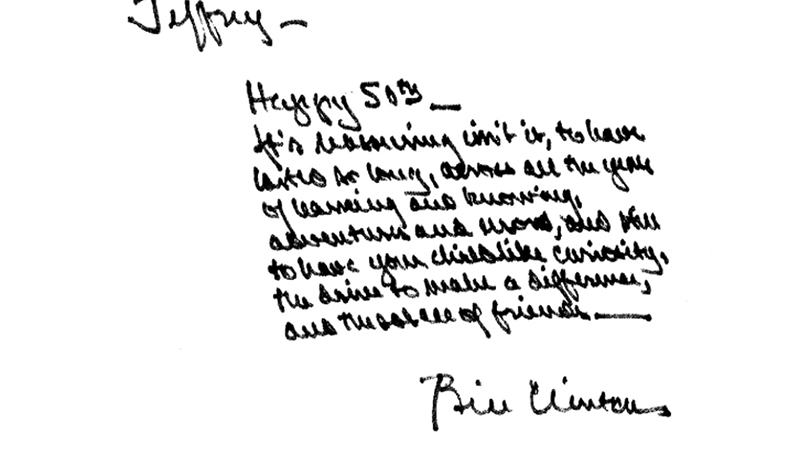 Jeffrey —
Happy 50th —
It's reassuring isn't it, to have
lasted so long, across all the years
of learning and knowing,
adventures and and still
to have your childlike curiosity,
the drive to make a difference,
and the solace of friends —
Bill Clinton